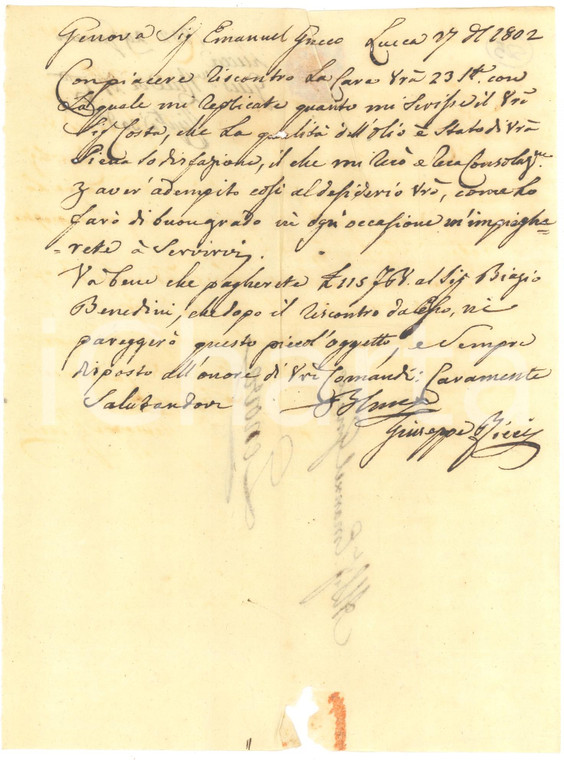 Genova Sig Emanuel Greco Lucca 27 1802
Con piacere riscontro la Cara Vrã 23 St. con
la quale mi replicate quanto mi Scrisse il Vrõ
Sig Costa, che la qualità dell'Olio è Stato di Vrã
Piena Sodisfazione, il che mi recò e reca Consolaz.ne
aver' adempito così al desiderio Vrõ, come lo
farò di buon grado in ogn' occasione m'impieghe=
=rete à Servirvi.
Và bene che pagherete £ 115 al Sig Biagio
Benedini, che dopo il riscontro
pareggerò questo piccol' oggetto, e Sempre
disposto all'onore di Vrĩ Comandi: Caramente
Salutandovi
Giuseppe Ricci